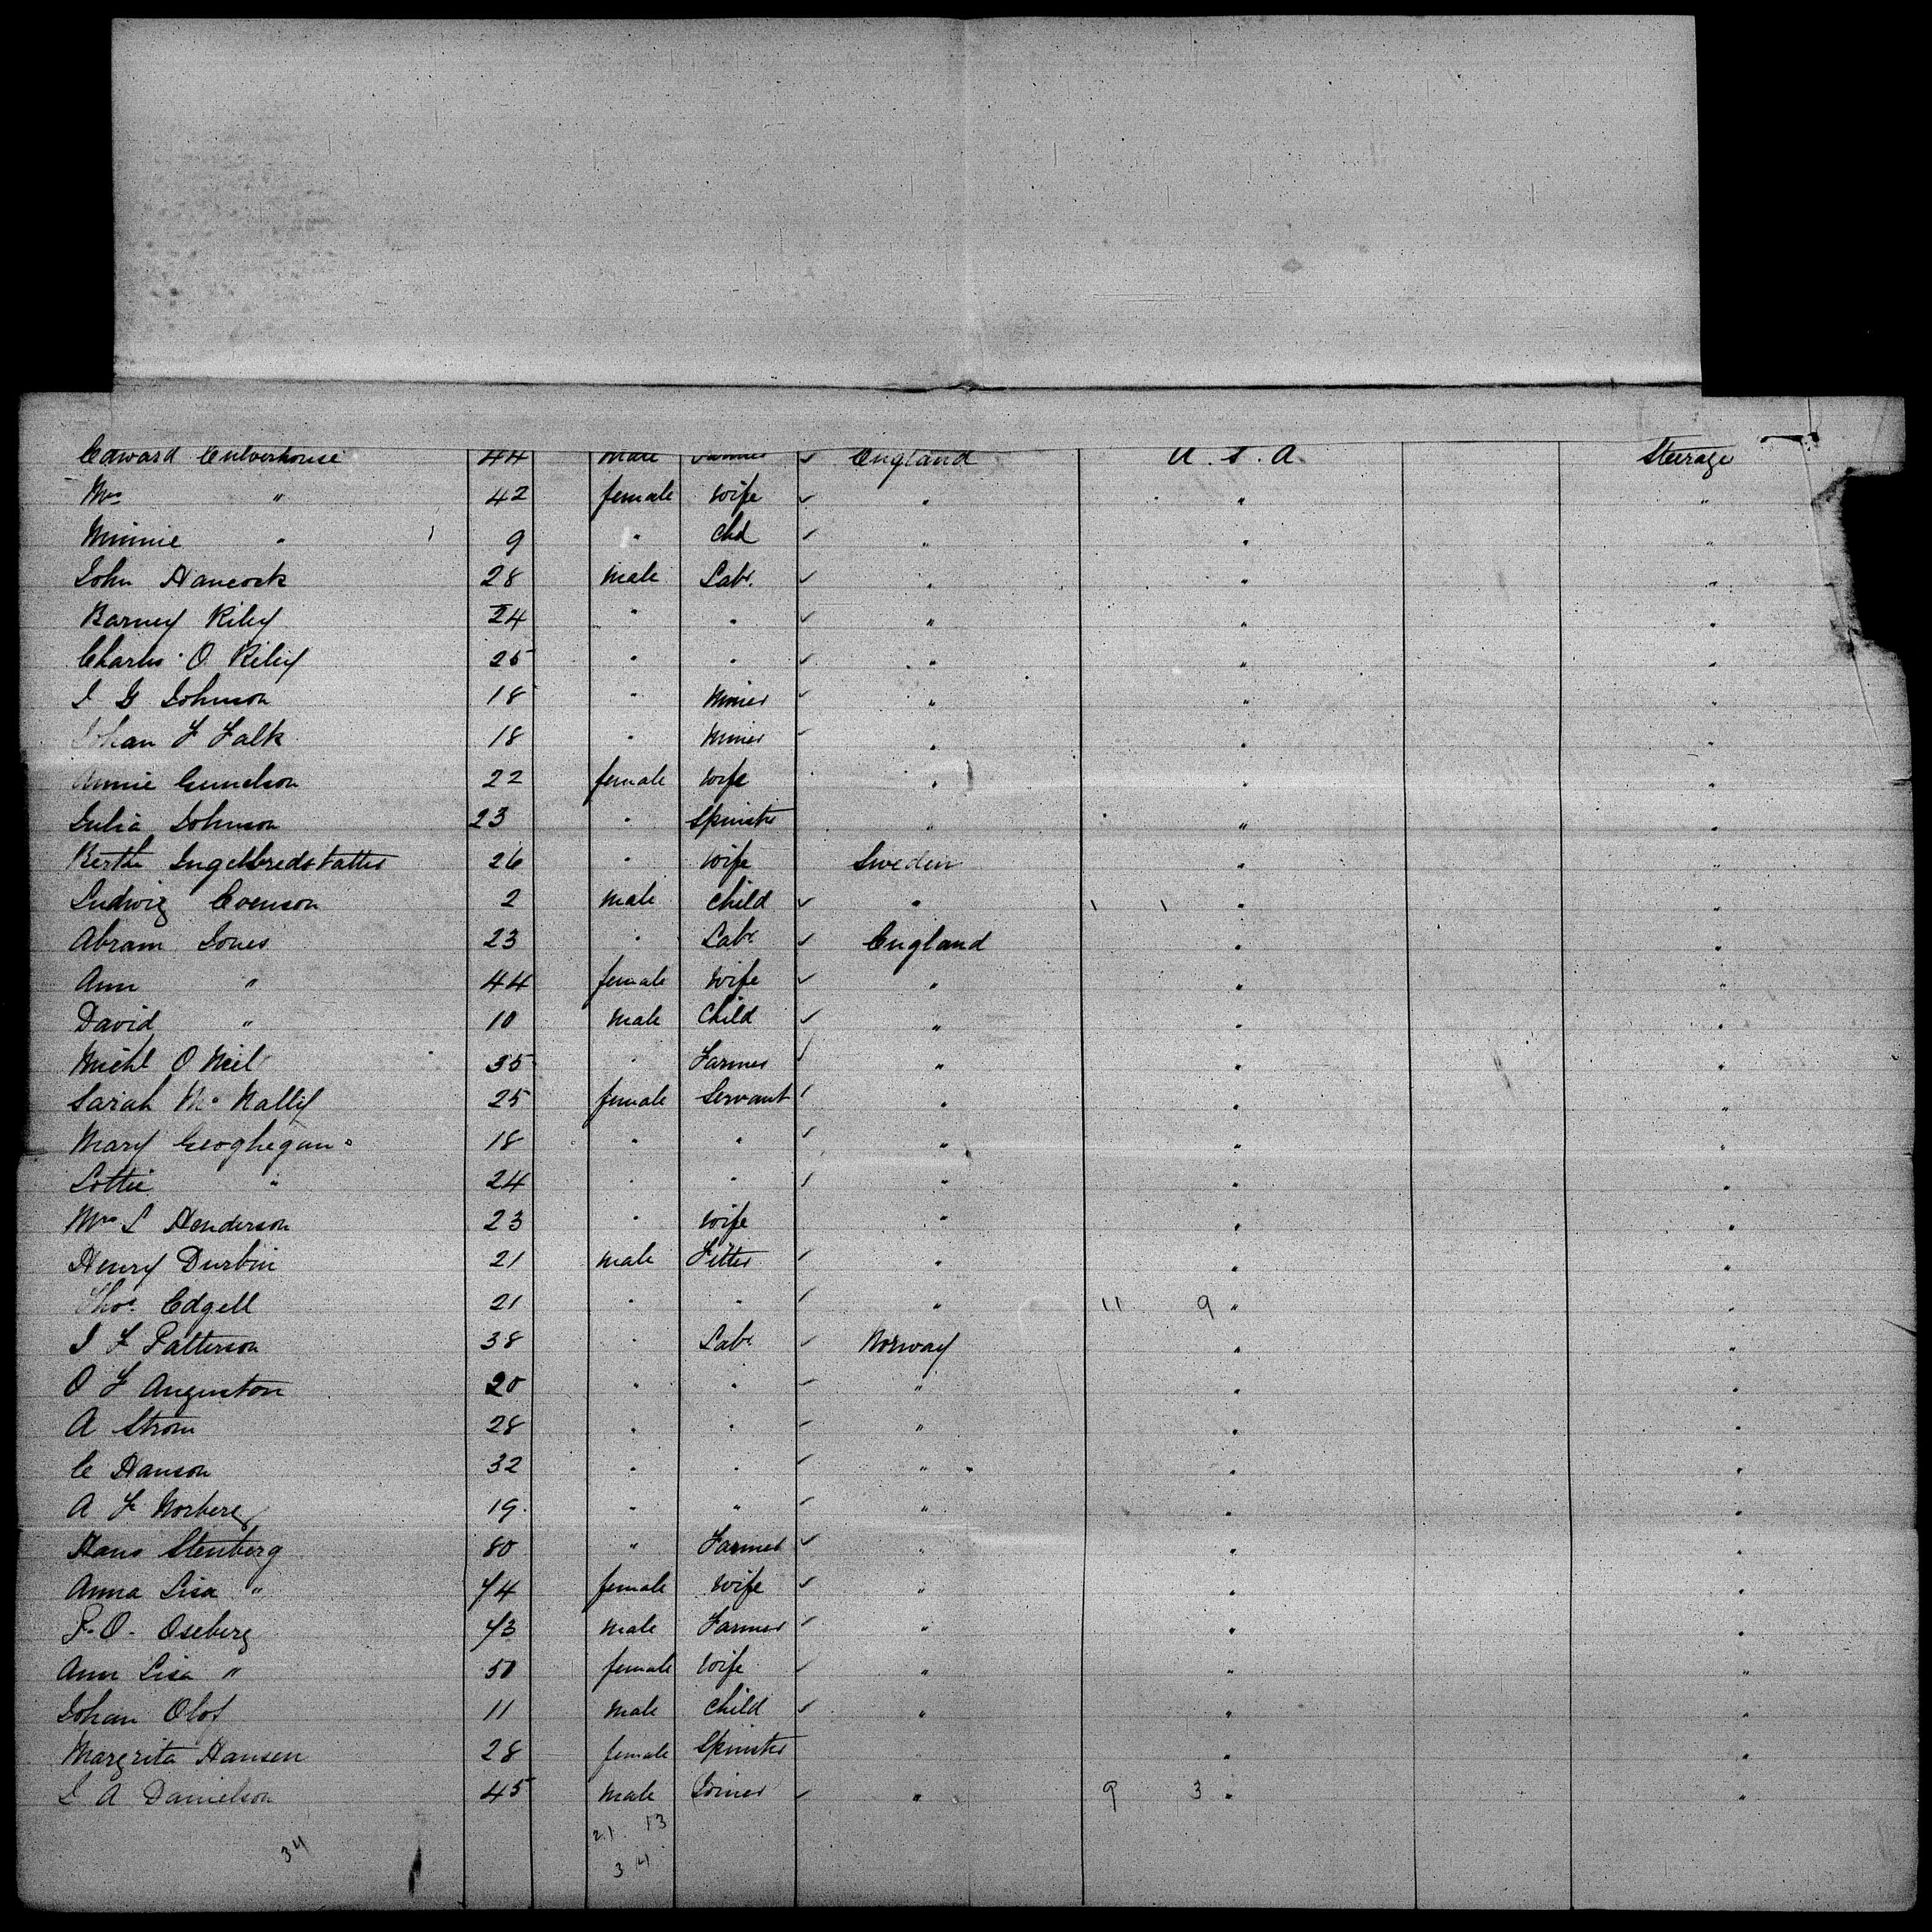 Edward Culverhouse 44 male Farmer ✓ England U.S.A Steerage
Mrs " 42 female wife ✓ " " "
Minnie " 9 " Chd ✓ " " "
John Hancock 28 male Labr. ✓ " " "
Barney Riley 24 " " ✓ " " "
Charles O Riley 25 " " ✓ " " "
J G Johnson 18 " Miner ✓ " " "
Johan F Falk 18 " Miner ✓ " " "
Annie Gunelson 22 female wife " " "
Julia Johnson 23 " Spinster " " "
Bertha 26 " wife Sweden " "
Ludwig Evenson 2 male Child ✓ " 1 1 " "
Abram Jones 23 " Labr ✓ England " "
Ann " 44 female wife ✓ " " "
David " 10 male Child ✓ " " "
Michl O Neil 35 " Farmer ✓ " " "
Sarah Mc Nally 25 female Servant ✓ " " "
Mary Geoghegan 18 " " ✓ " " "
Lottie " 24 " " ✓ " " "
Mrs L Henderson 23 " wife " " "
Henry Durbin 21 male Fitter ✓ " " "
Thos. Edgell 21 " " ✓ " 11 9 " "
J F Patterson 38 " Labr ✓ Norway " "
O F Anguston 20 " " ✓ " " "
A Strom 28 " " ✓ " " "
C Hanson 32 " " ✓ " " "
A F Norberg 19 " " ✓ " " "
Hans Stenberg 80 " Farmer ✓ " " "
Anna Lisa " 74 female wife ✓ " " "
P. O. Oseberg 43 male Farmer ✓ " " "
Ann Lisa " 50 female wife ✓ " " "
Johan Olof 11 male Child ✓ " " "
Margrita Hansen 28 female Spinster " "
J A Danielson 45 male Joiner ✓ " 9 3 " "
21 13
34 34